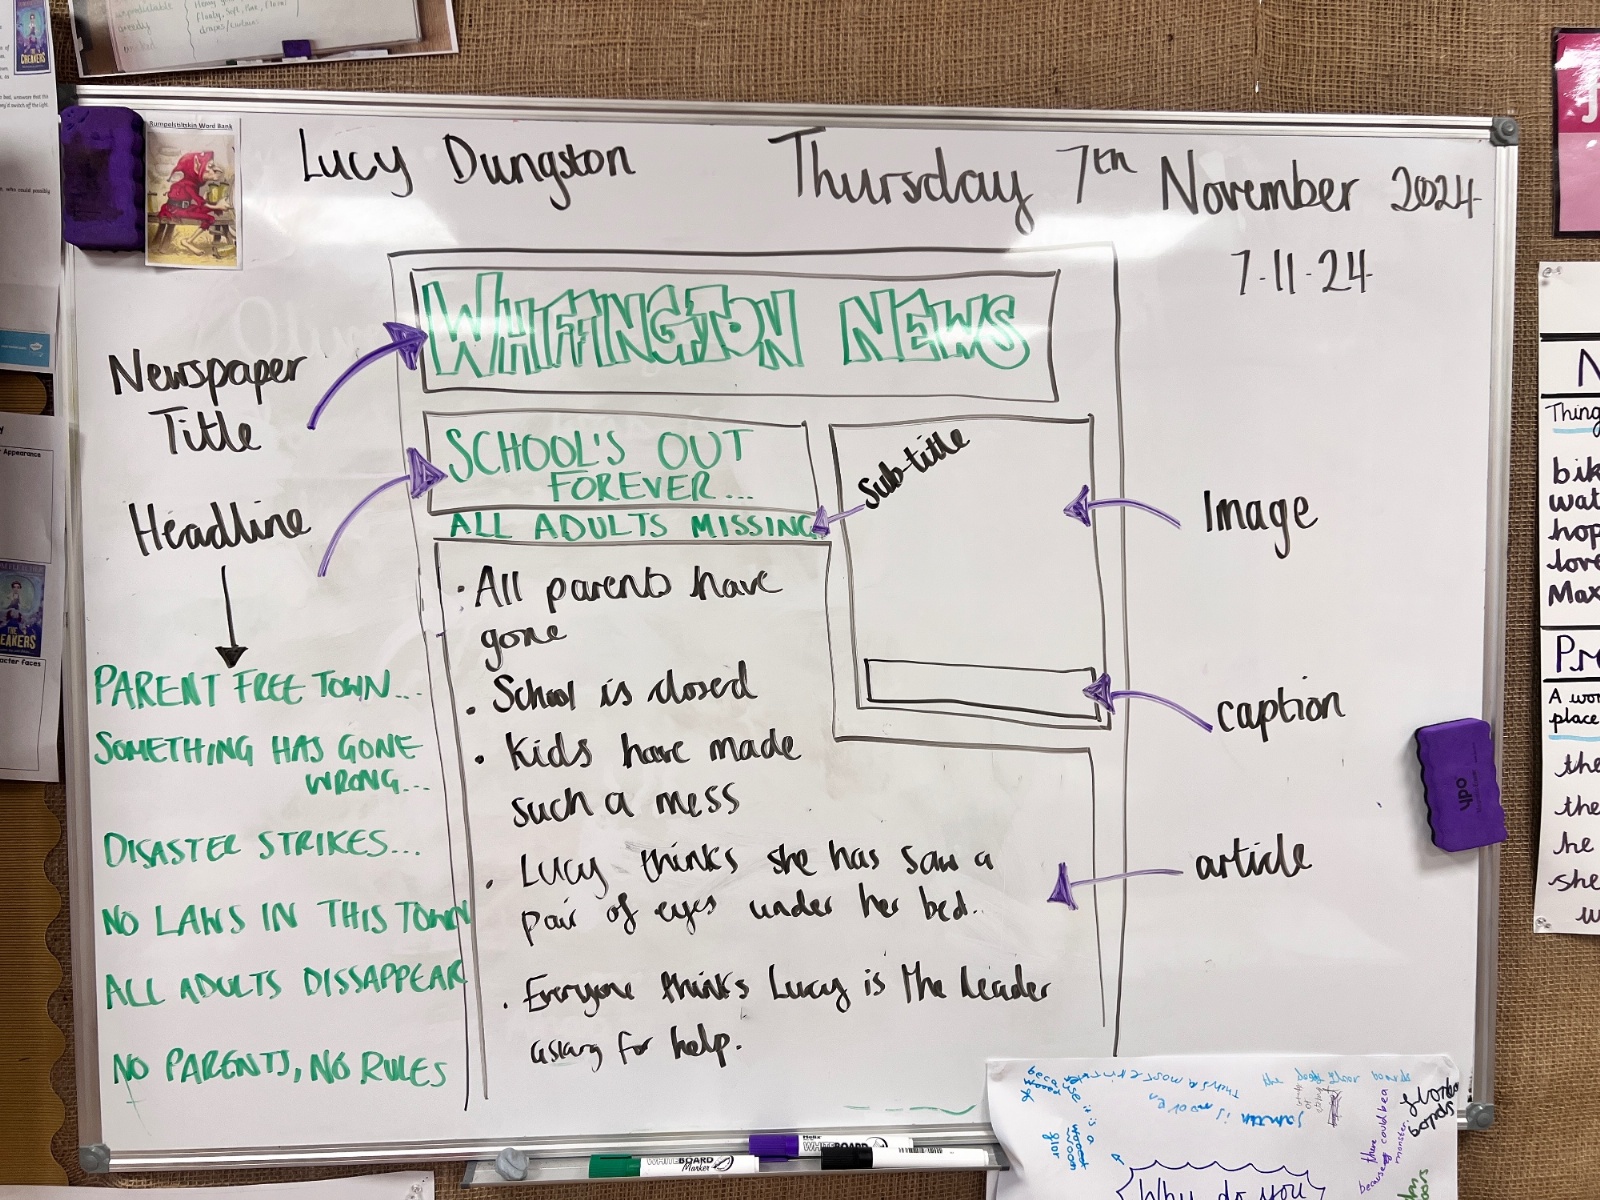 Rumpelstiltskin Word Bank
Lucy Dungston
Thursday 7th November 2024
7.11.24
WHIFFINGTON NEWS
Newspaper
Title
SCHOOL'S OUT
FOREVER...
Sub-title
ALL ADULTS MISSING
Headline
Image
caption
article
· All parents have
gone
· School is closed
· Kids have made
such a mess
· Lucy thinks she has saw a
pair of eyes under her bed..
· Everyone thinks Lucy is the leader
asking for help.
PARENT FREE TOWN...
SOMETHING HAS GONE
WRONG...
DISASTER STRIKES...
NO LAWS IN THIS TOWN
ALL ADULTS DISSAPPEAR
NO PARENTS, NO RULES
ypo
Helix
WHITEBOARD
WHITEBOARD
Marker
Why do you
Thing
bik
wat
hop
love
Max
Pr
A wor
place
the
the
he
she
w
Appearance
THE